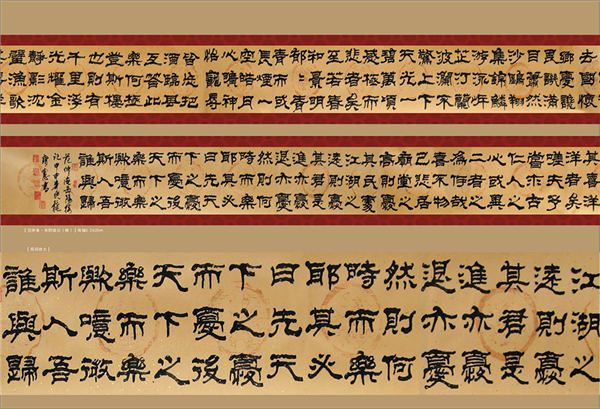 去國懷
鄉憂讒
畏譏滿
目蕭然
沙鷗翔
集錦鱗
游泳岸
芷汀蘭
波瀾不
驚上下
天光一
碧萬頃
感極而
悲者矣
至若春
和景明
郁郁青
青而或
長煙一
空皓月
心曠神
怡寵辱
皆忘把
酒臨
互答此
樂何極
登斯樓
也則有
千里浮
光耀金
靜影沈
璧漁歌
其喜洋
洋者矣
嗟夫予
嘗求古
仁人之
心或異
二者之
為何哉
不以物
喜不以
己悲居
廟堂之
高則憂
其民處
江湖之
遠則憂
其君是
進亦憂
退亦憂
然則何
時而樂
耶其必
曰先天
下之憂
而憂後
天下之
樂而樂
歟噫微
斯人吾
誰與歸
范仲淹岳陽樓
記甲申年
江湖之
遠則憂
其君是
進亦憂
退亦憂
然則何
時而樂
耶其必
曰先天
下之憂
而憂後
天下之
樂而樂
歟噫微
斯人吾
誰與歸